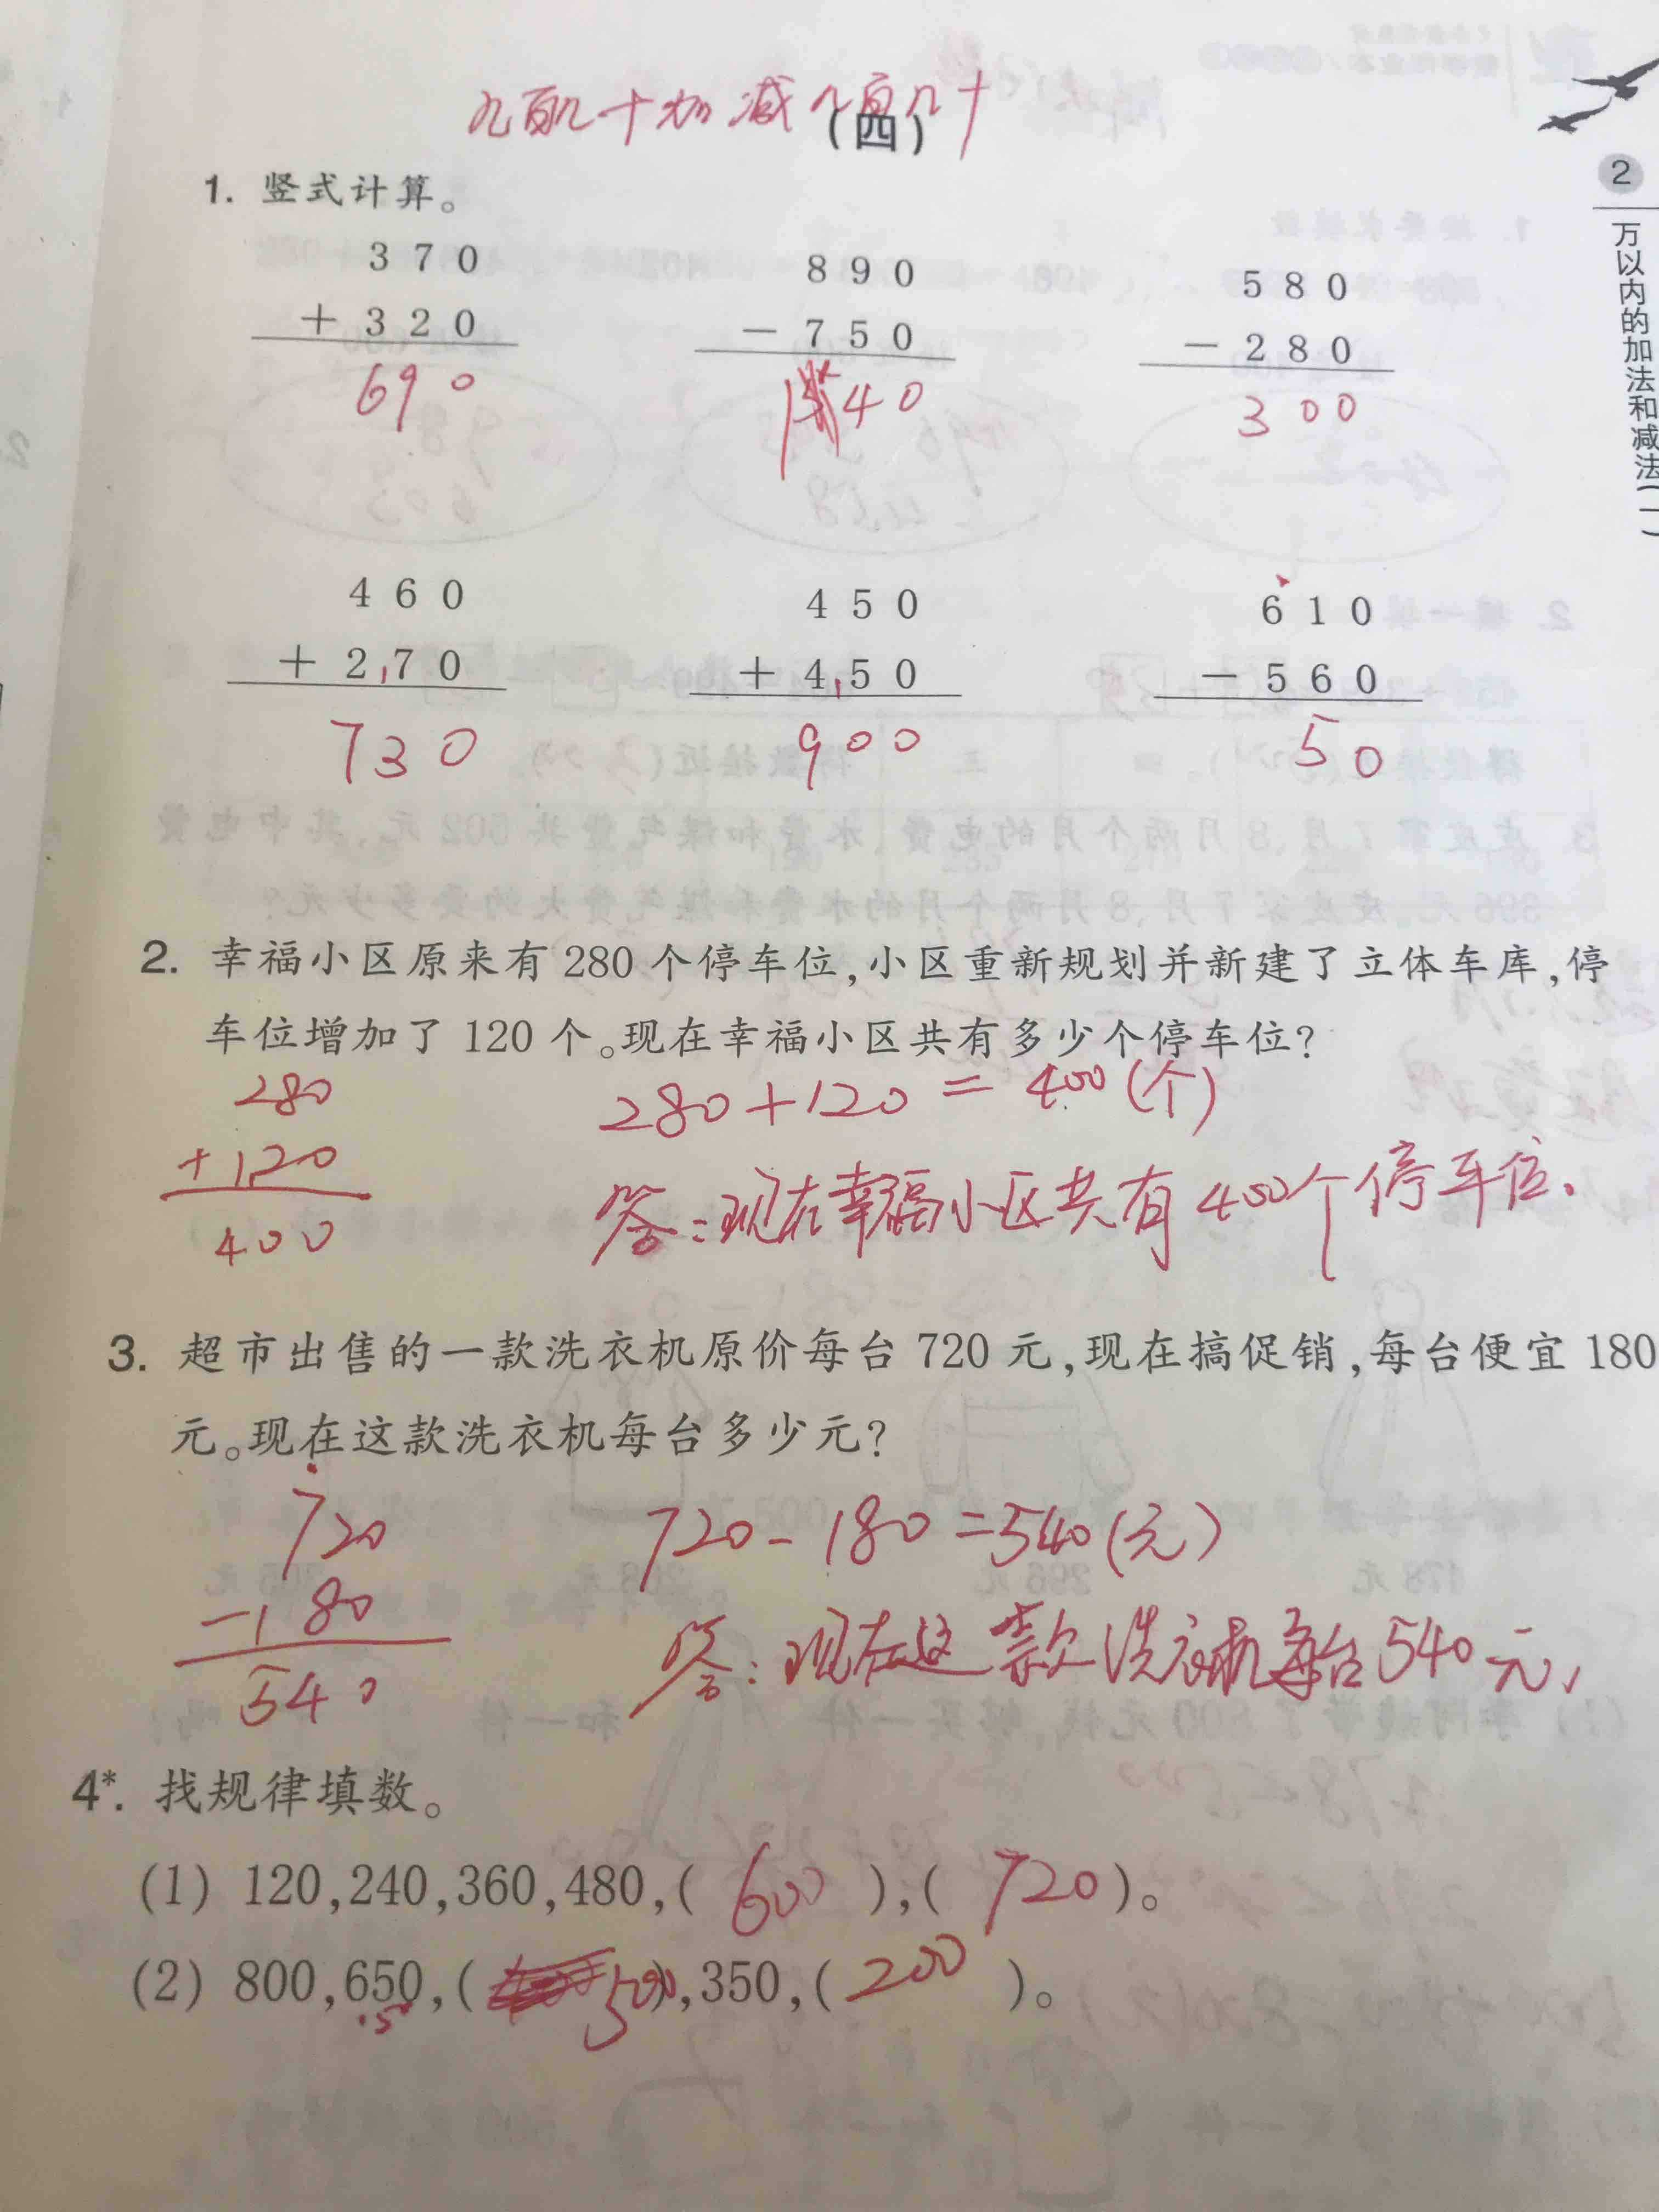 几百几十加减几百几十
(四)
2
万以内的加法和减法(一)
1. 竖式计算。
370 890 580
+320 -750 -280
690 140 300
460 450 610
+270 +450 -560
730 900 50
2. 幸福小区原来有280个停车位,小区重新规划并新建了立体车库,停
车位增加了120个。现在幸福小区共有多少个停车位?
280 280+120=400(个)
+120 答:现在幸福小区共有400个停车位.
400
3. 超市出售的一款洗衣机原价每台720元,现在搞促销,每台便宜180
元。现在这款洗衣机每台多少元?
720 720-180=540(元)
-180 答:现在这款洗衣机每台540元,
540
4*. 找规律填数。
(1) 120,240,360,480,( 600 ),( 720 )。
(2) 800,650,( 500 ),350,( 200 )。